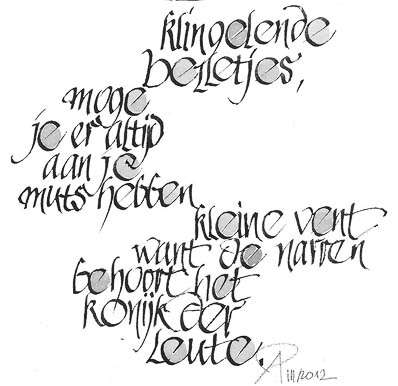 klingelende
belletjes,
moge
je er altijd
aan je
muts hebben
kleine vent
want de narren
behoort het
konijk der
leute.
III/2012